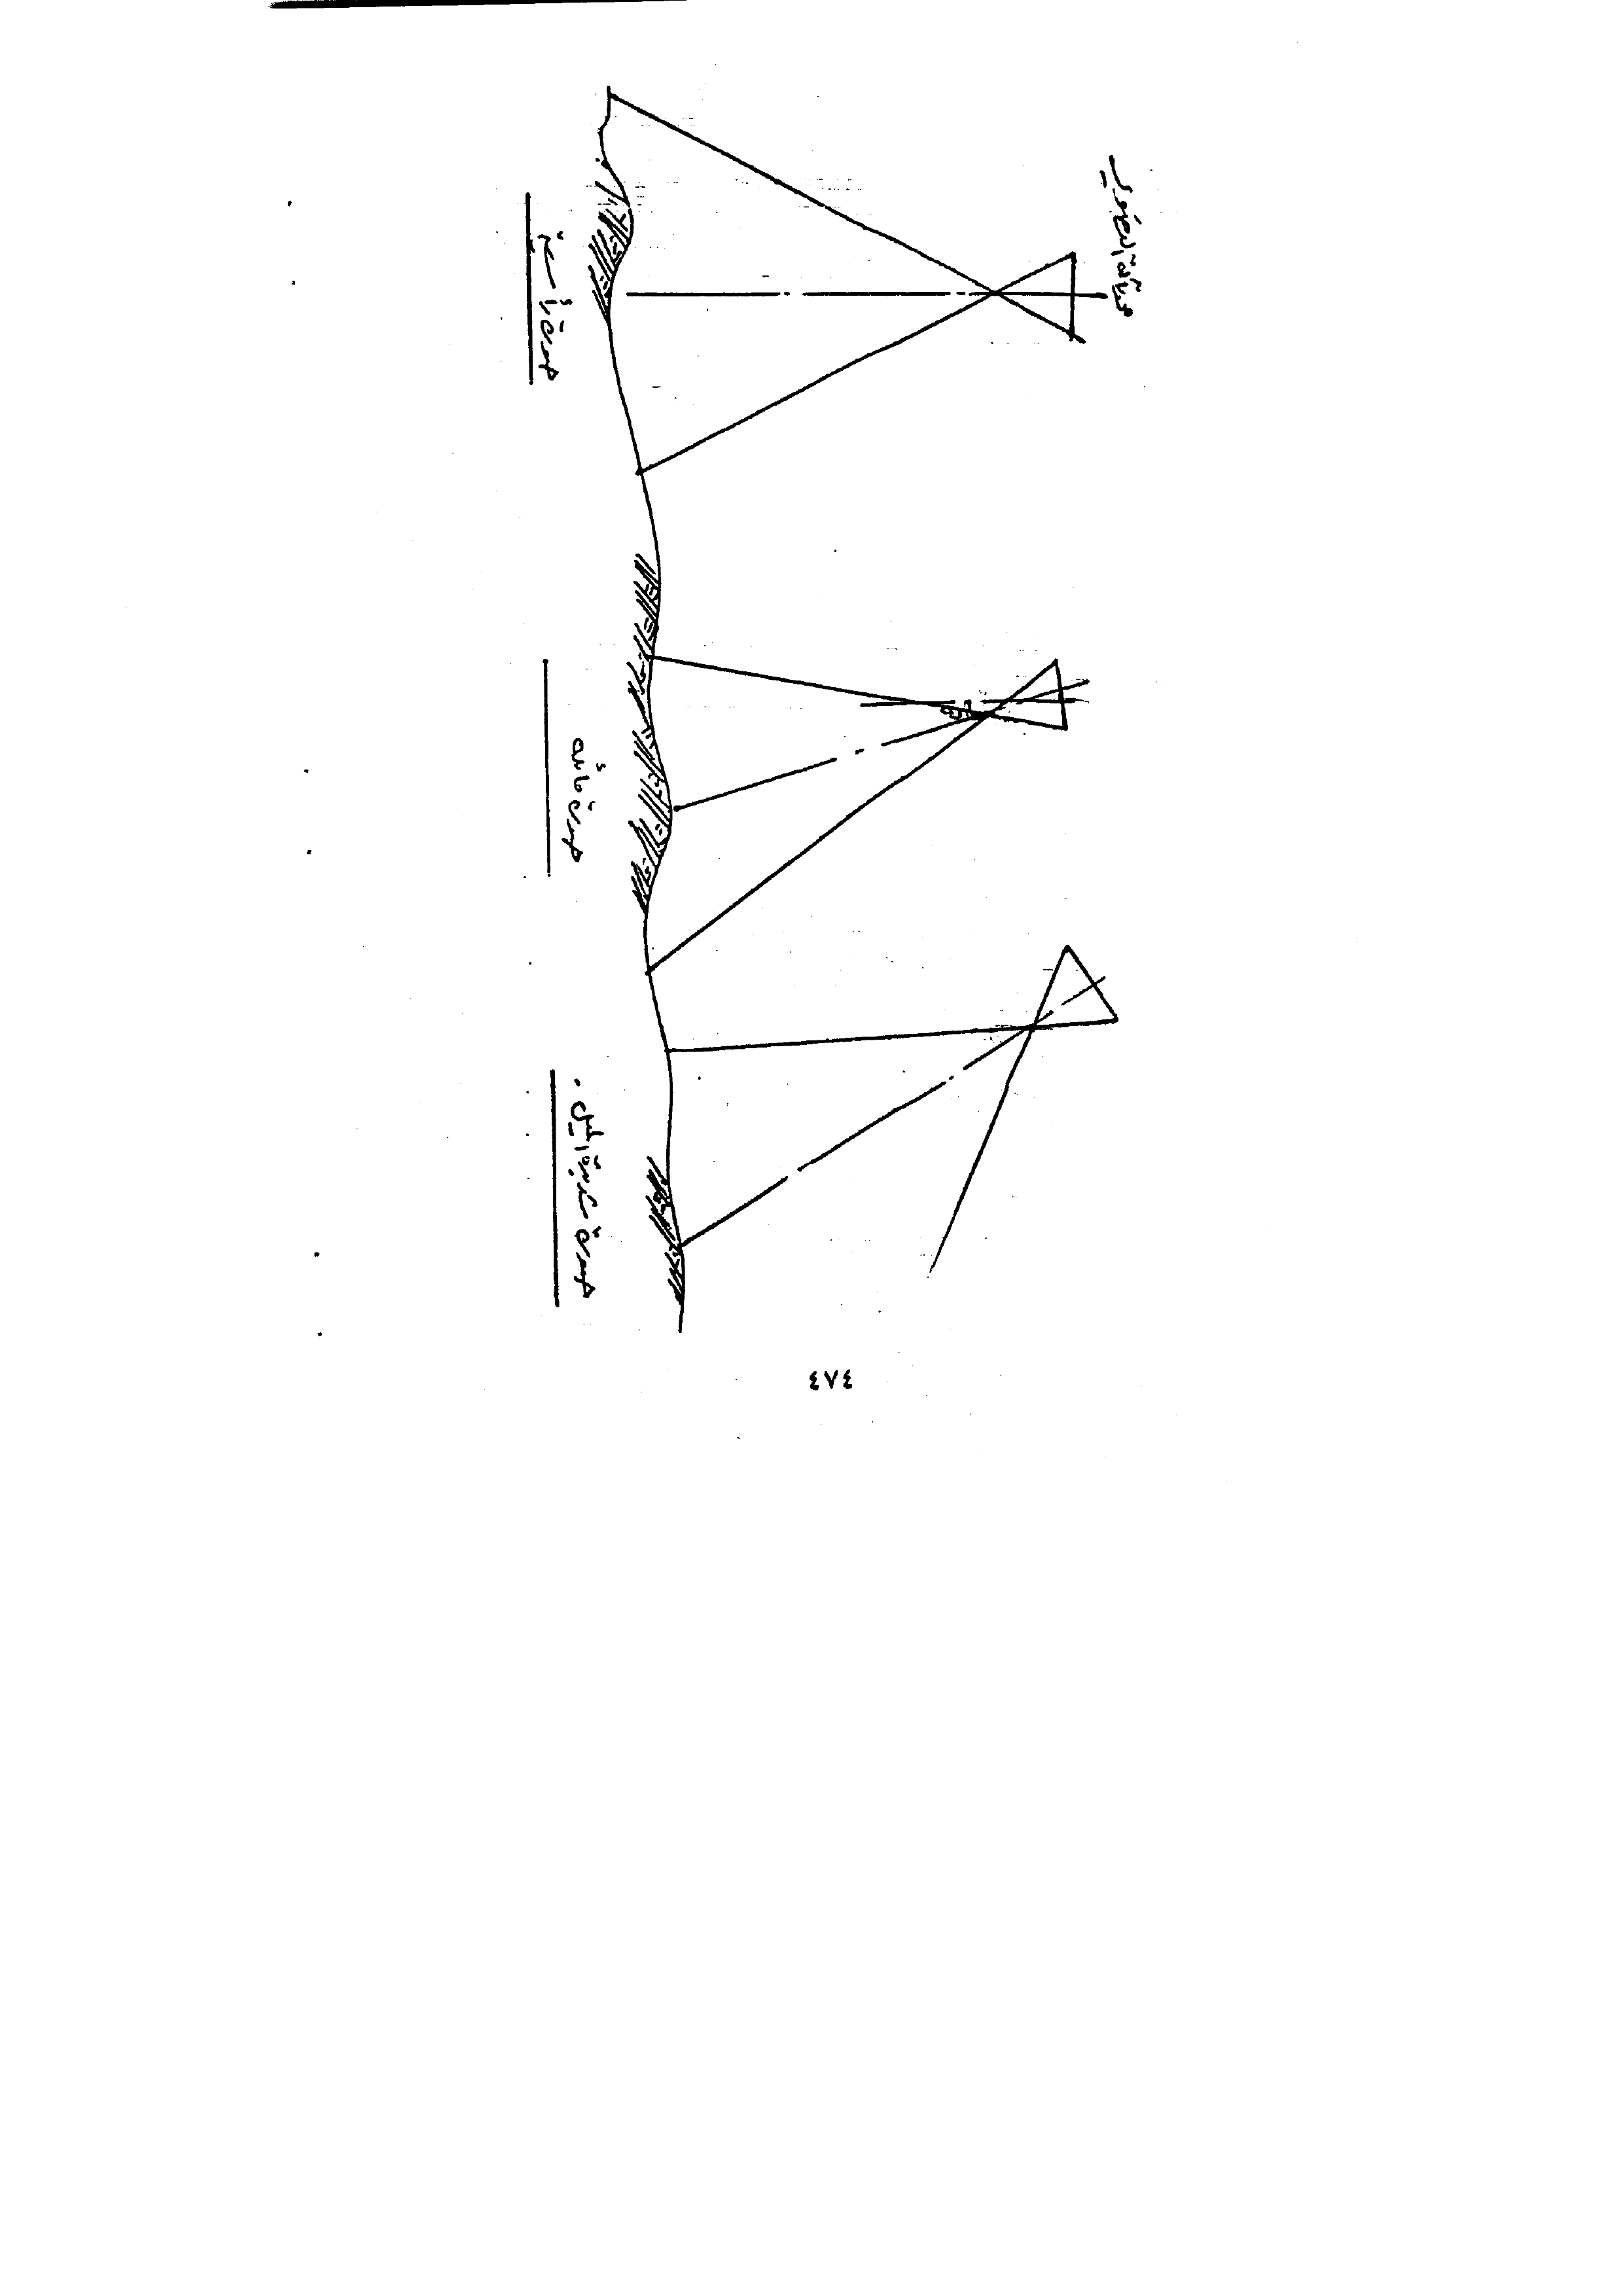 محور آلة التصوير
صورة رأسية
صورة مائلة
صورة شديدة الميل
٤٧٤